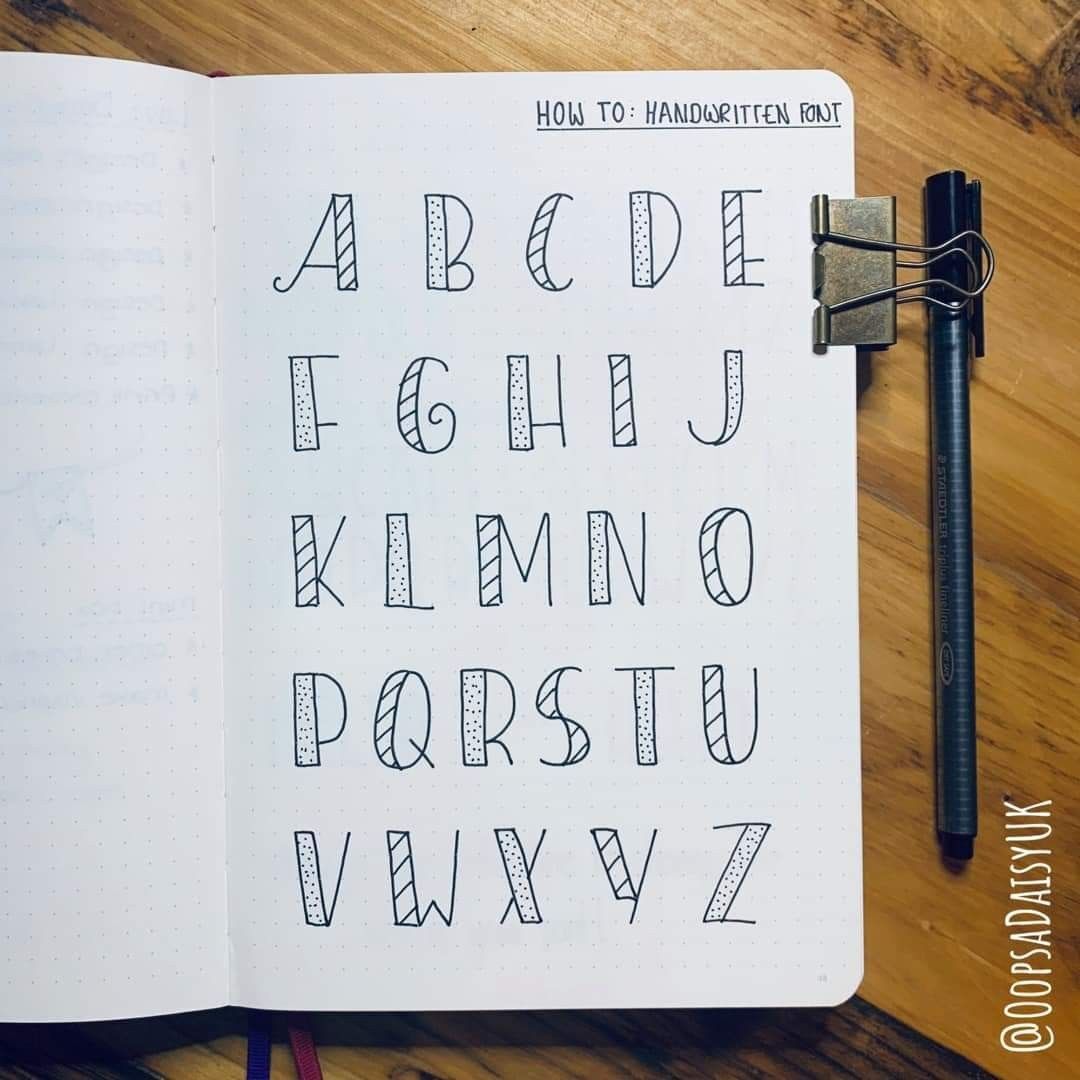 HOW TO: HANDWRITTEN FONT
A B C D E
F G H I J
K L M N O
P Q R S T U
V W X Y Z
STAEDTLER triplus fineliner
@OOPSADAISYUK